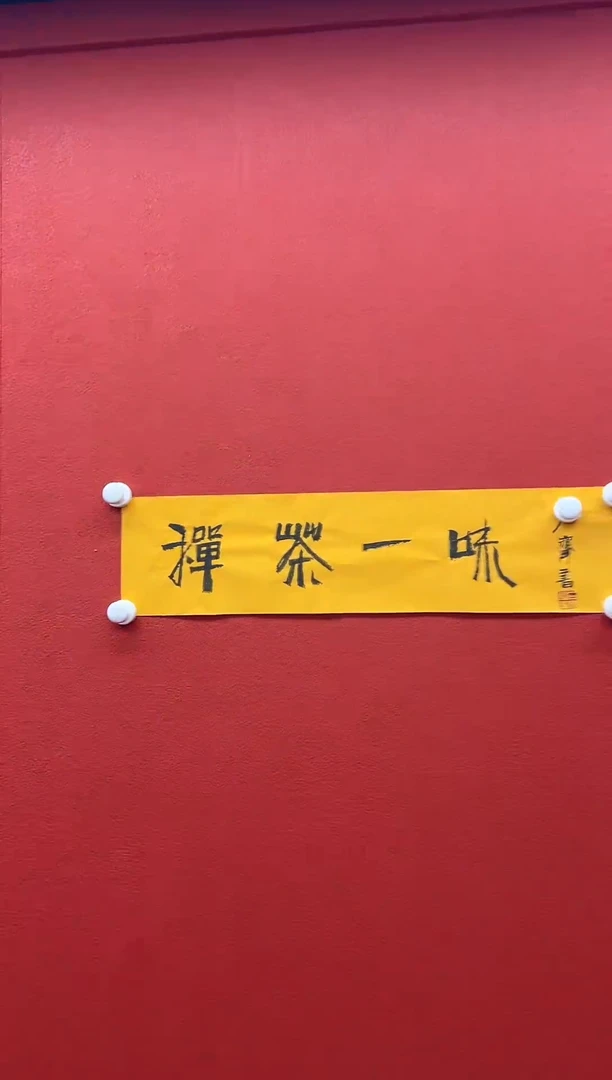 禪茶一味